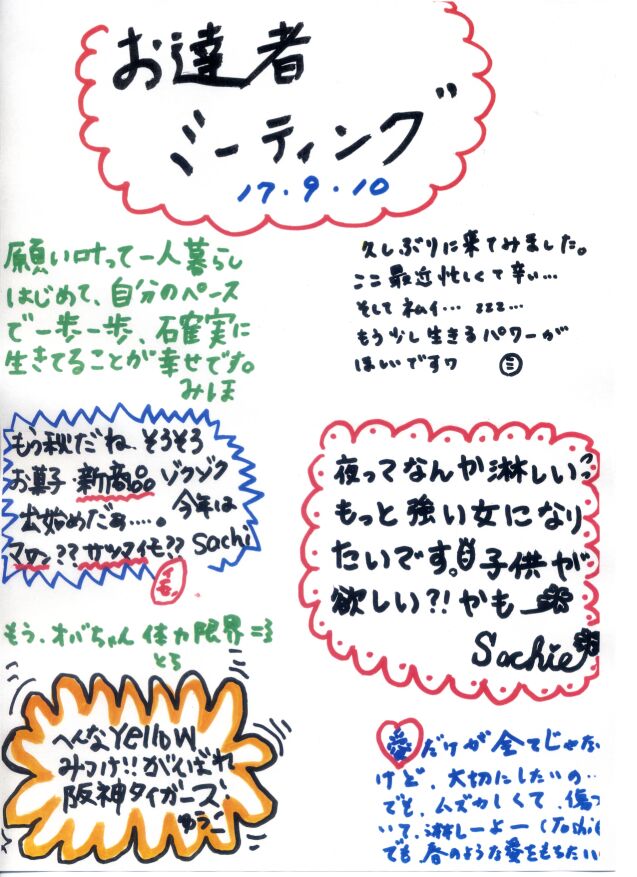 お達者
ミーティング
17.9.10
願い叶って一人暮らし
はじめて、自分のペース
で一歩一歩、確実に
生きてることが幸せです。
みほ
久しぶりに来てみました。
ここ最近忙しくて辛い…
そしてネムイ… zzz…
もう少し生きるパワーが
ほしいですワ
もう秋だね、そろそろ
お菓子 新商品 ゾクゾク
今年は
出始めだぁ……。
マロン??サツマイモ?? Sachi
夜ってなんか淋しい?
もっと強い女になり
たいです。子供が
欲しい?!かも
Sachie
もう、オバちゃん体力限界=3
とら
へんなYellow
みつけ!!がんばれ
阪神タイガース!
ゆうこ
愛だけが全てじゃな
けど、大切にしたいの…
でも、ムズかしくて、傷つ
いて、淋しーよー (Toshie
でも春のような愛をもちたい